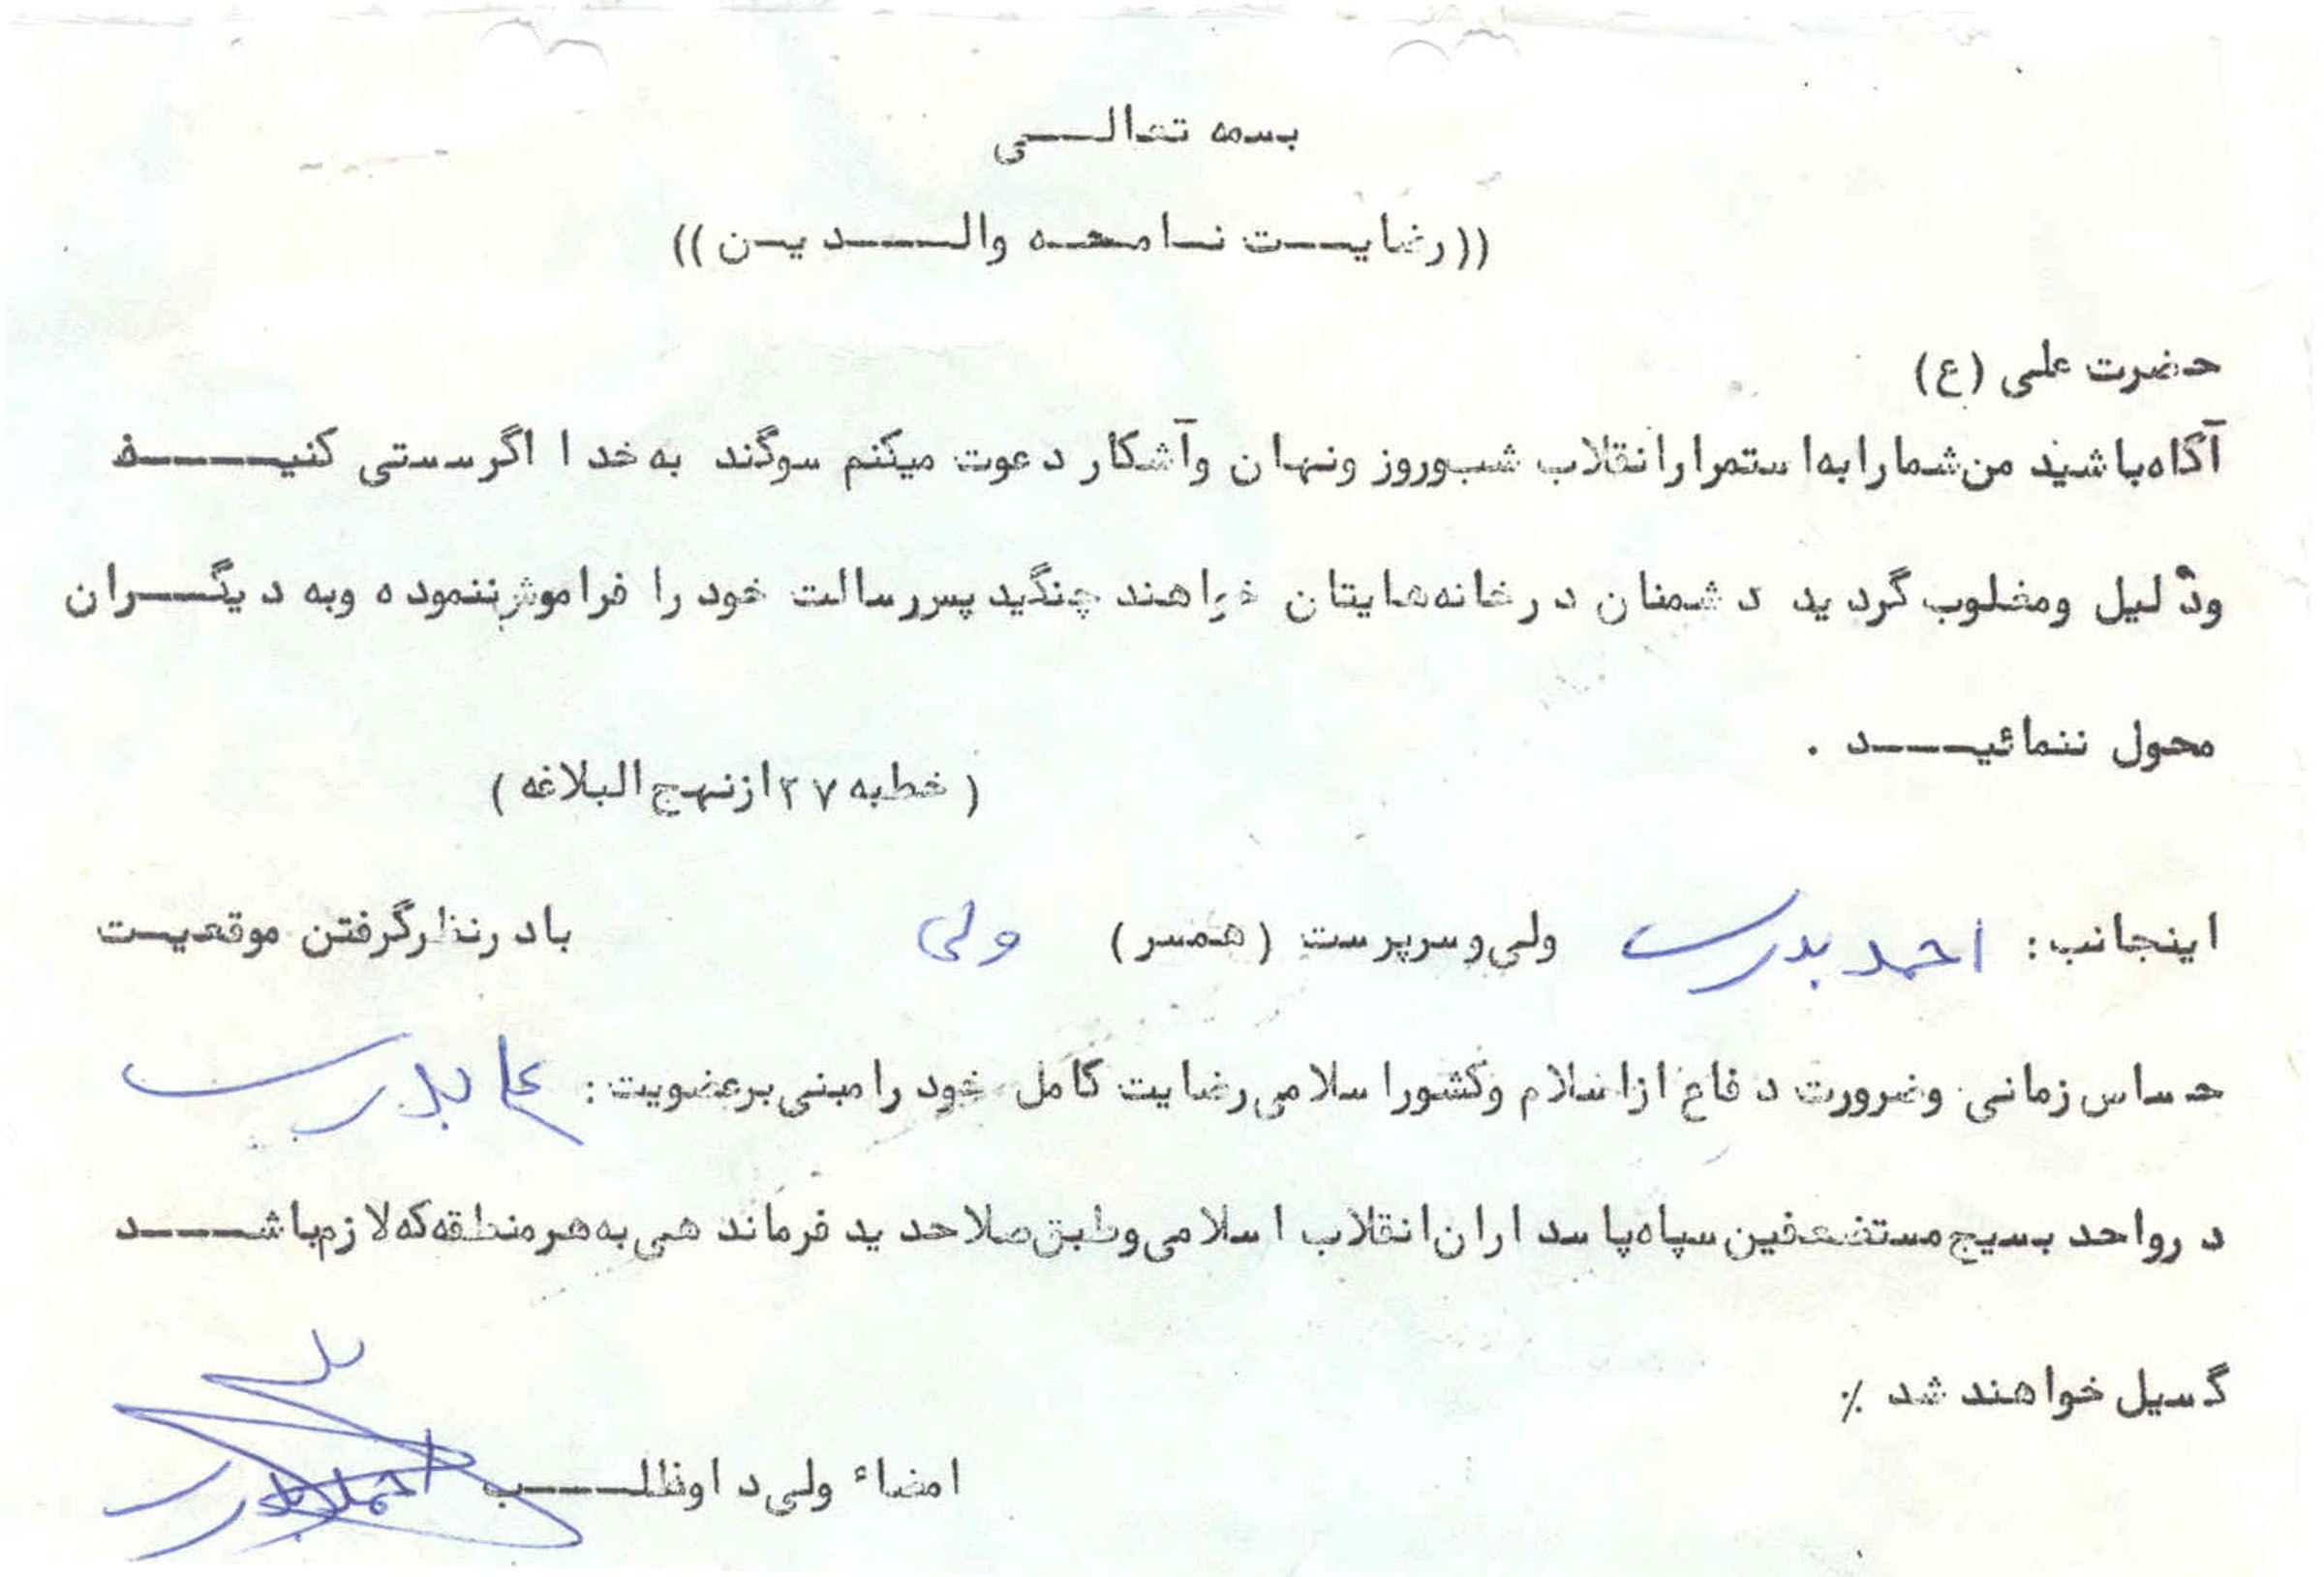 بسمه تعالی
((رضایت نامه والدین))
حضرت علی (ع)
آگاه باشید من شما را به استمرار انقلاب شب و روز و نهان و آشکار دعوت میکنم سوگند به خدا اگر سستی کنید
و ذلیل و مغلوب گردید دشمنان در خانه هایتان خواهند جنگید پس رسالت خود را فراموش ننموده و به دیگران
محول ننمائید .
( خطبه ۲۷ از نهج البلاغه )
اینجانب: احمد بدری ولی و سرپرست (همسر) ولی با در نظر گرفتن موقعیت
حساس زمانی و ضرورت دفاع از اسلام و کشور اسلامی رضایت کامل خود را مبنی بر عضویت: علی بدری
در واحد بسیج مستضعفین سپاه پاسداران انقلاب اسلامی و طبق صلاحدید فرماندهی به هر منطقه که لازم باشد
گسیل خواهند شد ٪
امضاء ولی داوطلب احمد بدری